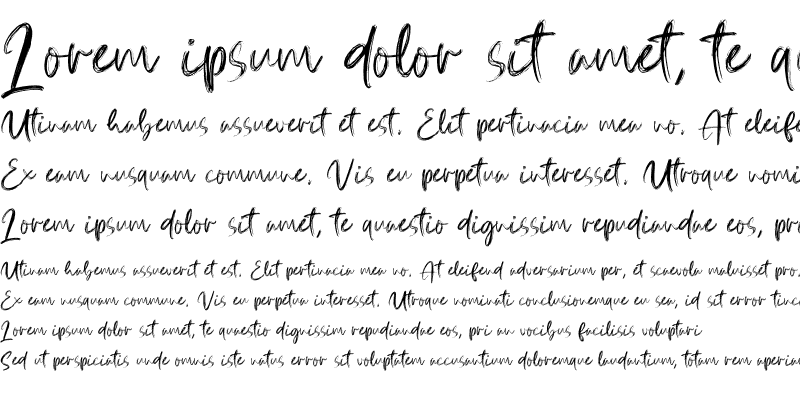 Lorem ipsum dolor sit amet, te q
Utinam habemus assueverit et est. Elit pertinacia mea no. At eleife
Ex eam nusquam commune. Vis eu perpetua interesset. Utroque nomi
Lorem ipsum dolor sit amet, te quaestio dignissim repudiandae eos, pri
Utinam habemus assueverit et est. Elit pertinacia mea no. At eleifend adversarium per, et scaevola maluisset pro.
Ex eam nusquam commune. Vis eu perpetua interesset. Utroque nominati conclusionemque eu sea, id sit error tinc
Lorem ipsum dolor sit amet, te quaestio dignissim repudiandae eos, pri an vocibus facilisis voluptari
Sed ut perspiciatis unde omnis iste natus error sit voluptatem accusantium doloremque laudantium, totam rem aperia